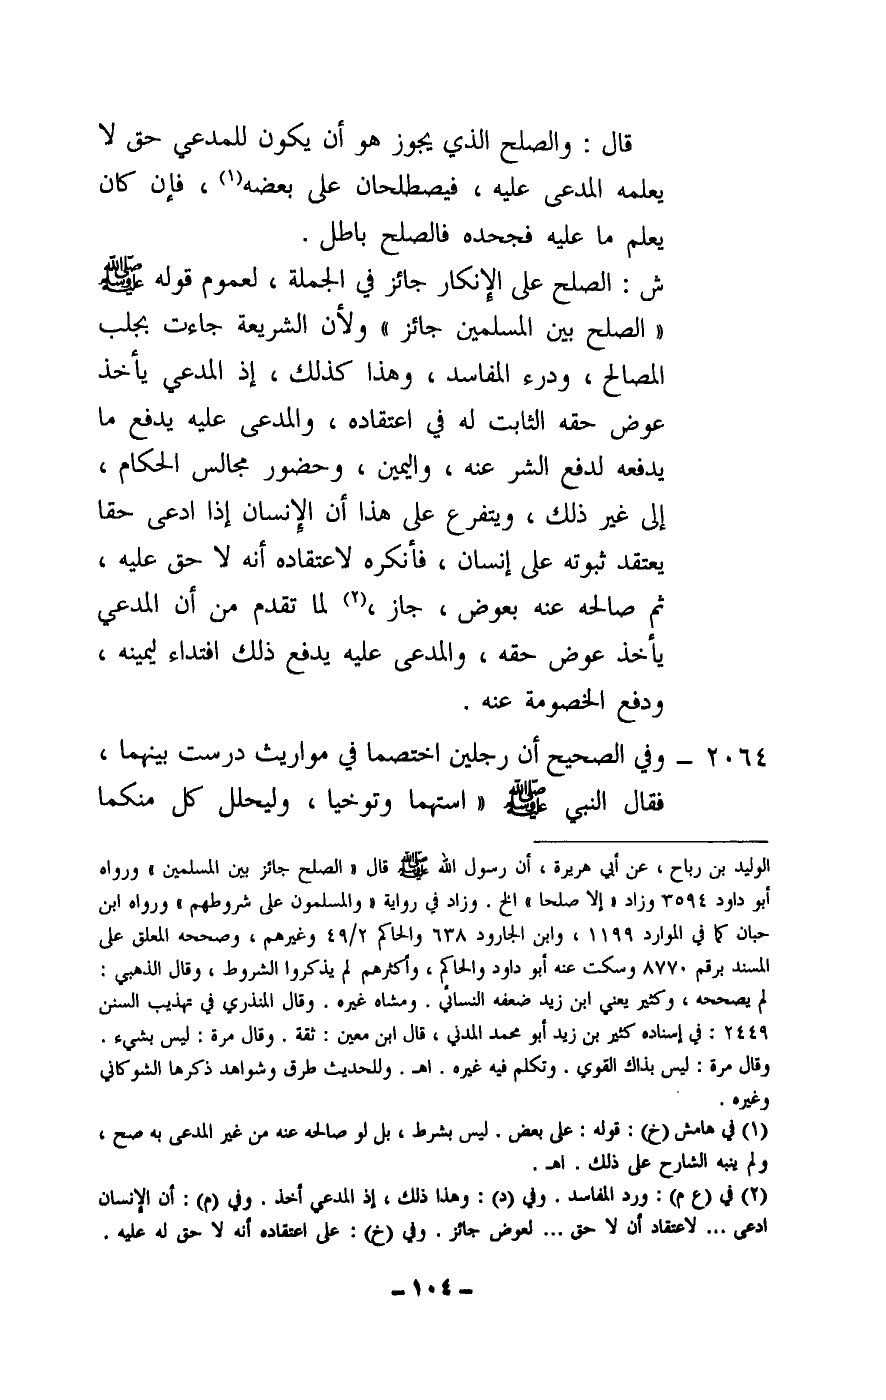 قال : والصلح الذي يجوز هو أن يكون للمدعي حق لا
يعلمه المدعى عليه ، فيصطلحان على بعضه(١) ، فإن كان
يعلم ما عليه فجحده فالصلح باطل .
ش : الصلح على الإنكار جائز في الجملة ، لعموم قوله ﷺ
« الصلح بين المسلمين جائز » ولأن الشريعة جاءت بجلب
المصالح ، ودرء المفاسد ، وهذا كذلك ، إذ المدعي يأخذ
عوض حقه الثابت له في اعتقاده ، والمدعى عليه يدفع ما
يدفعه لدفع الشر عنه ، واليمين ، وحضور مجالس الحكام ،
إلى غير ذلك ، ويتفرع على هذا أن الإنسان إذا ادعى حقا
يعتقد ثبوته على إنسان ، فأنكره لاعتقاده أنه لا حق عليه ،
ثم صالحه عنه بعوض ، جاز ،(٢) لما تقدم من أن المدعي
يأخذ عوض حقه ، والمدعى عليه يدفع ذلك افتداء ليمينه ،
ودفع الخصومة عنه .
٢٠٦٤ – وفي الصحيح أن رجلين اختصما في مواريث درست بينهما ،
فقال النبي ﷺ « استهما وتوخيا ، وليحلل كل منكما
الوليد بن رباح ، عن أبي هريرة ، أن رسول الله ﷺ قال « الصلح جائز بين المسلمين » ورواه
أبو داود ٣٥٩٤ وزاد « إلا صلحا » الخ . وزاد في رواية « والمسلمون على شروطهم » ورواه ابن
حبان كما في الموارد ١١٩٩ ، وابن الجارود ٦٣٨ والحاكم ٤٩/٢ وغيرهم ، وصححه المعلق على
المسند برقم ٨٧٧٠ وسكت عنه أبو داود والحاكم ، وأكثرهم لم يذكروا الشروط ، وقال الذهبي :
لم يصححه ، وكثير يعني ابن زيد ضعفه النسائي . ومشاه غيره . وقال المنذري في تهذيب السنن
٢٤٤٩ : في إسناده كثير بن زيد أبو محمد المدني ، قال ابن معين : ثقة . وقال مرة : ليس بشيء .
وقال مرة : ليس بذاك القوي . وتكلم فيه غيره . اهـ . وللحديث طرق وشواهد ذكرها الشوكاني
وغيره .
(١) في هامش (خ) : قوله : على بعض . ليس بشرط ، بل لو صالحه عنه من غير المدعى به صح ،
ولم ينبه الشارح على ذلك . اهـ .
(٢) في (ع م) : ورد المفاسد . وفي (د) : وهذا ذلك ، إذ المدعي أخذ . وفي (م) : أن الإنسان
ادعى ... لاعتقاد أن لا حق ... لعوض جائز . وفي (خ) : على اعتقاده أنه لا حق له عليه .
– ١٠٤ –